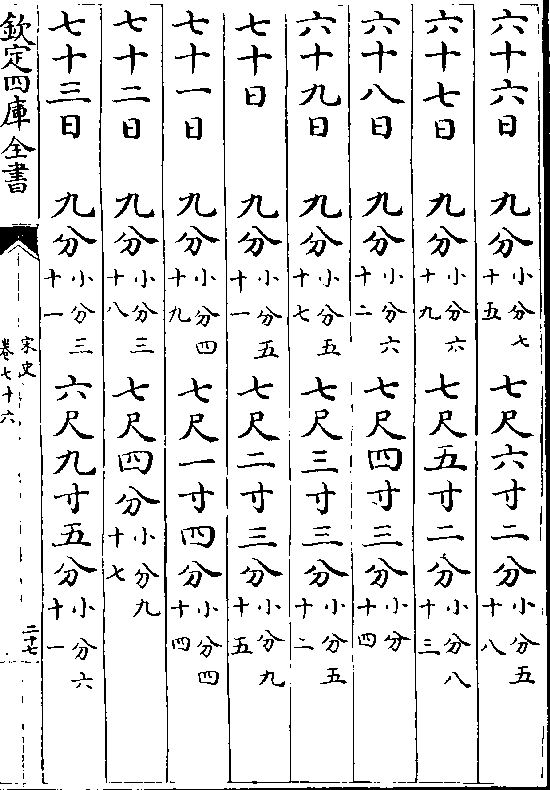 六十六日 九分小分七十五 七尺六寸二分小分五十八
六十七日 九分小分六十九 七尺五寸二分小分八十三
六十八日 九分小分六十二 七尺四寸三分小分十四
六十九日 九分小分五十七 七尺三寸三分小分五十二
七十日 九分小分五十一 七尺二寸三分小分九十五
七十一日 九分小分四十九 七尺一寸四分小分四十四
七十二日 九分小分三十八 七尺四分小分九十七
七十三日 九分小分三十一 六尺九寸五分小分六十一
欽定四庫全書
宋史
卷七十六
二十七